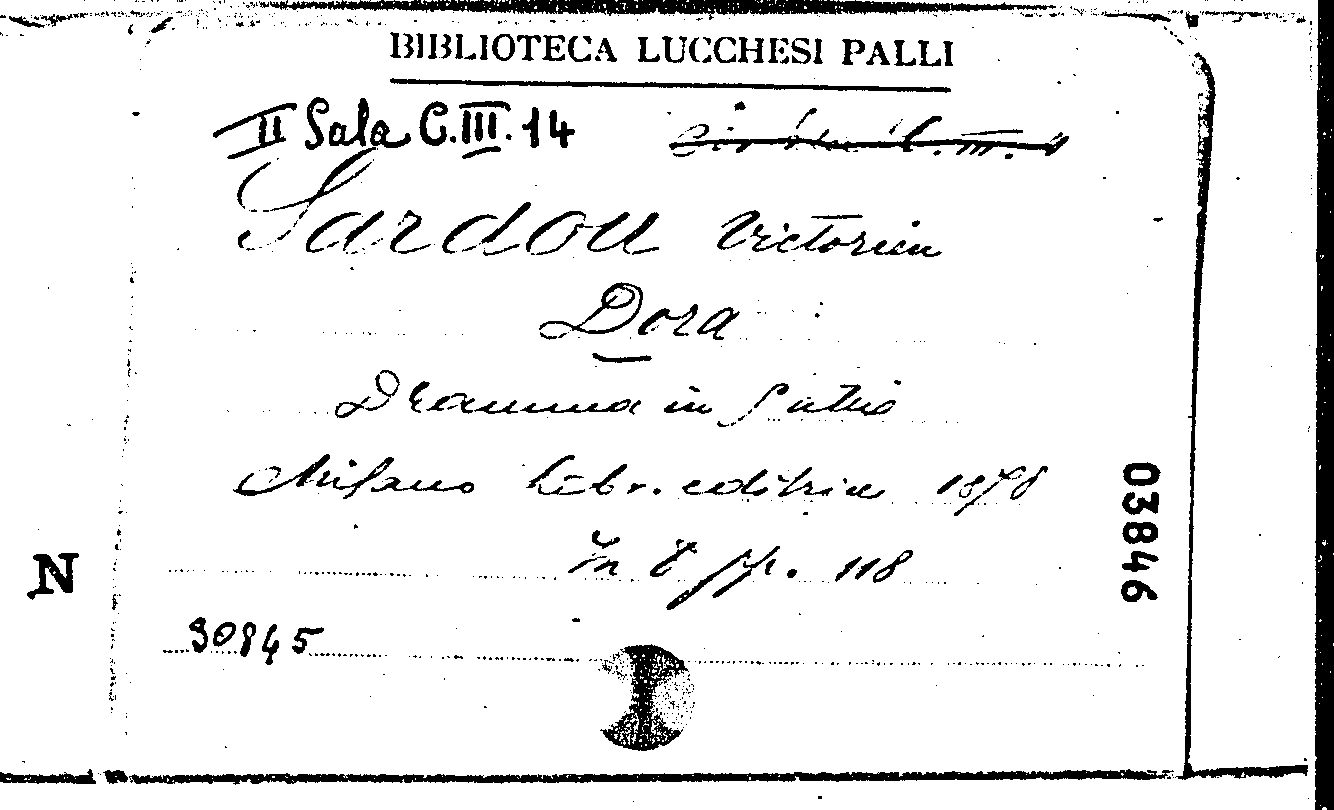 BIBLIOTECA LUCCHESI PALLI
II Sala C.III.14
Sardou Victorien
Dora
Dramma in 5 atti
Milano Libr. editrice 1878
In 8 pp. 118
N
30845
03846